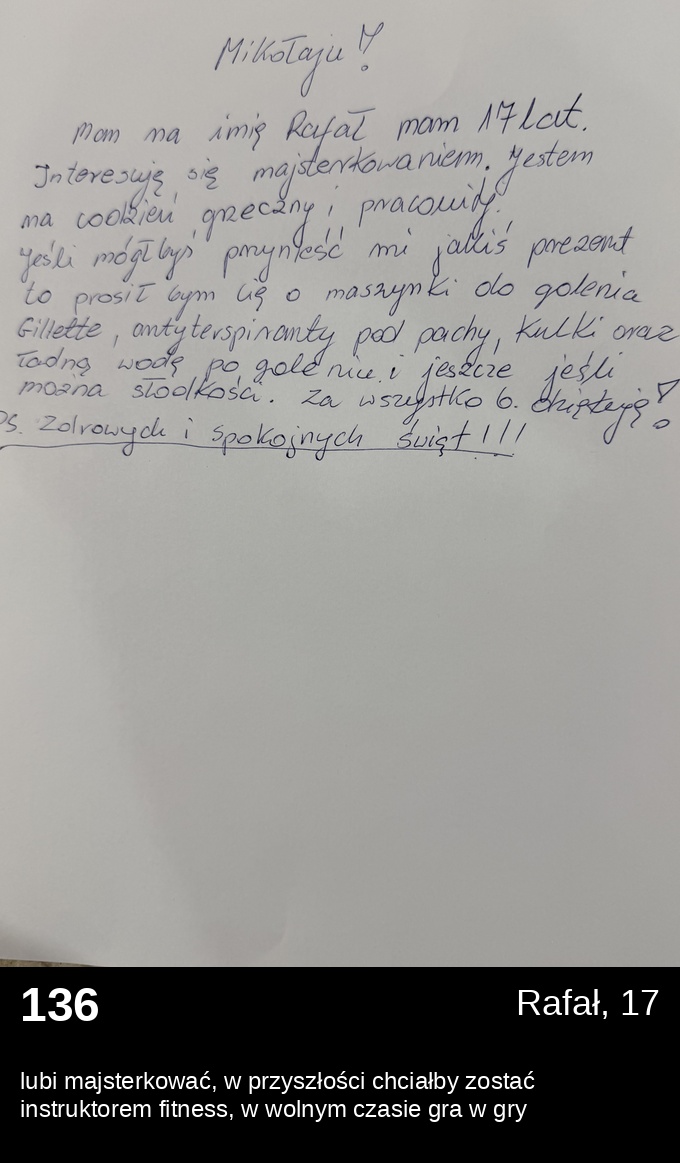 Mikołaju!
Mam na imię Rafał mam 17 lat.
Interesuję się majsterkowaniem. Jestem
na codzień grzeczny i pracowity.
Jeśli mógł byś przynieść mi jakiś prezent
to prosił bym cię o maszynki do golenia
Gillette, antyterspiranty pod pachy, kulki oraz
ładną wodę po goleniu i jeszcze jeśli
można słodkości. Za wszystko b. dziękuję!
Ps. Zdrowych i spokojnych świąt!!!
136
Rafał, 17
lubi majsterkować, w przyszłości chciałby zostać
instruktorem fitness, w wolnym czasie gra w gry